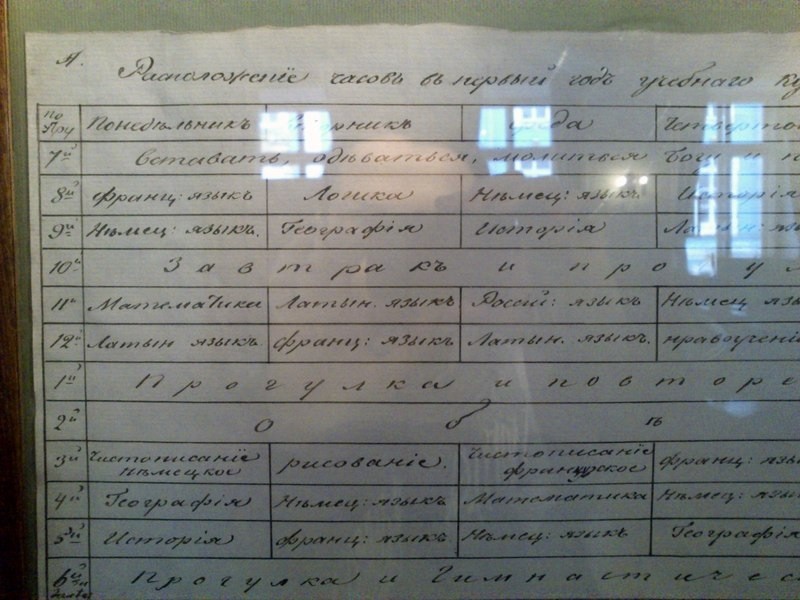 А.
Расположенiе часовъ въ первый годъ учебнаго
по Полу Понедѣльникъ Вторникъ Среда
7й Вставать, одѣваться, молиться Богу и
8й Франц: языкъ Логика Нѣмец: языкъ. Исторiя
9й Нѣмец: языкъ. Географiя Исторiя
10й Завтракъ и
11й Математика Латын. языкъ Россiй: языкъ Нѣмец
12й Латын языкъ. франц: языкъ Латын. языкъ.
1й Прогулка и
2й О б ѣ
3й Чистописанiе нѣмецкое рисованiе. Чистописанiе французское франц:
4й Географiя Нѣмец: языкъ Математика Нѣмец:
5й Исторiя франц: языкъ. Нѣмец: языкъ Географiя
6й Прогулка и